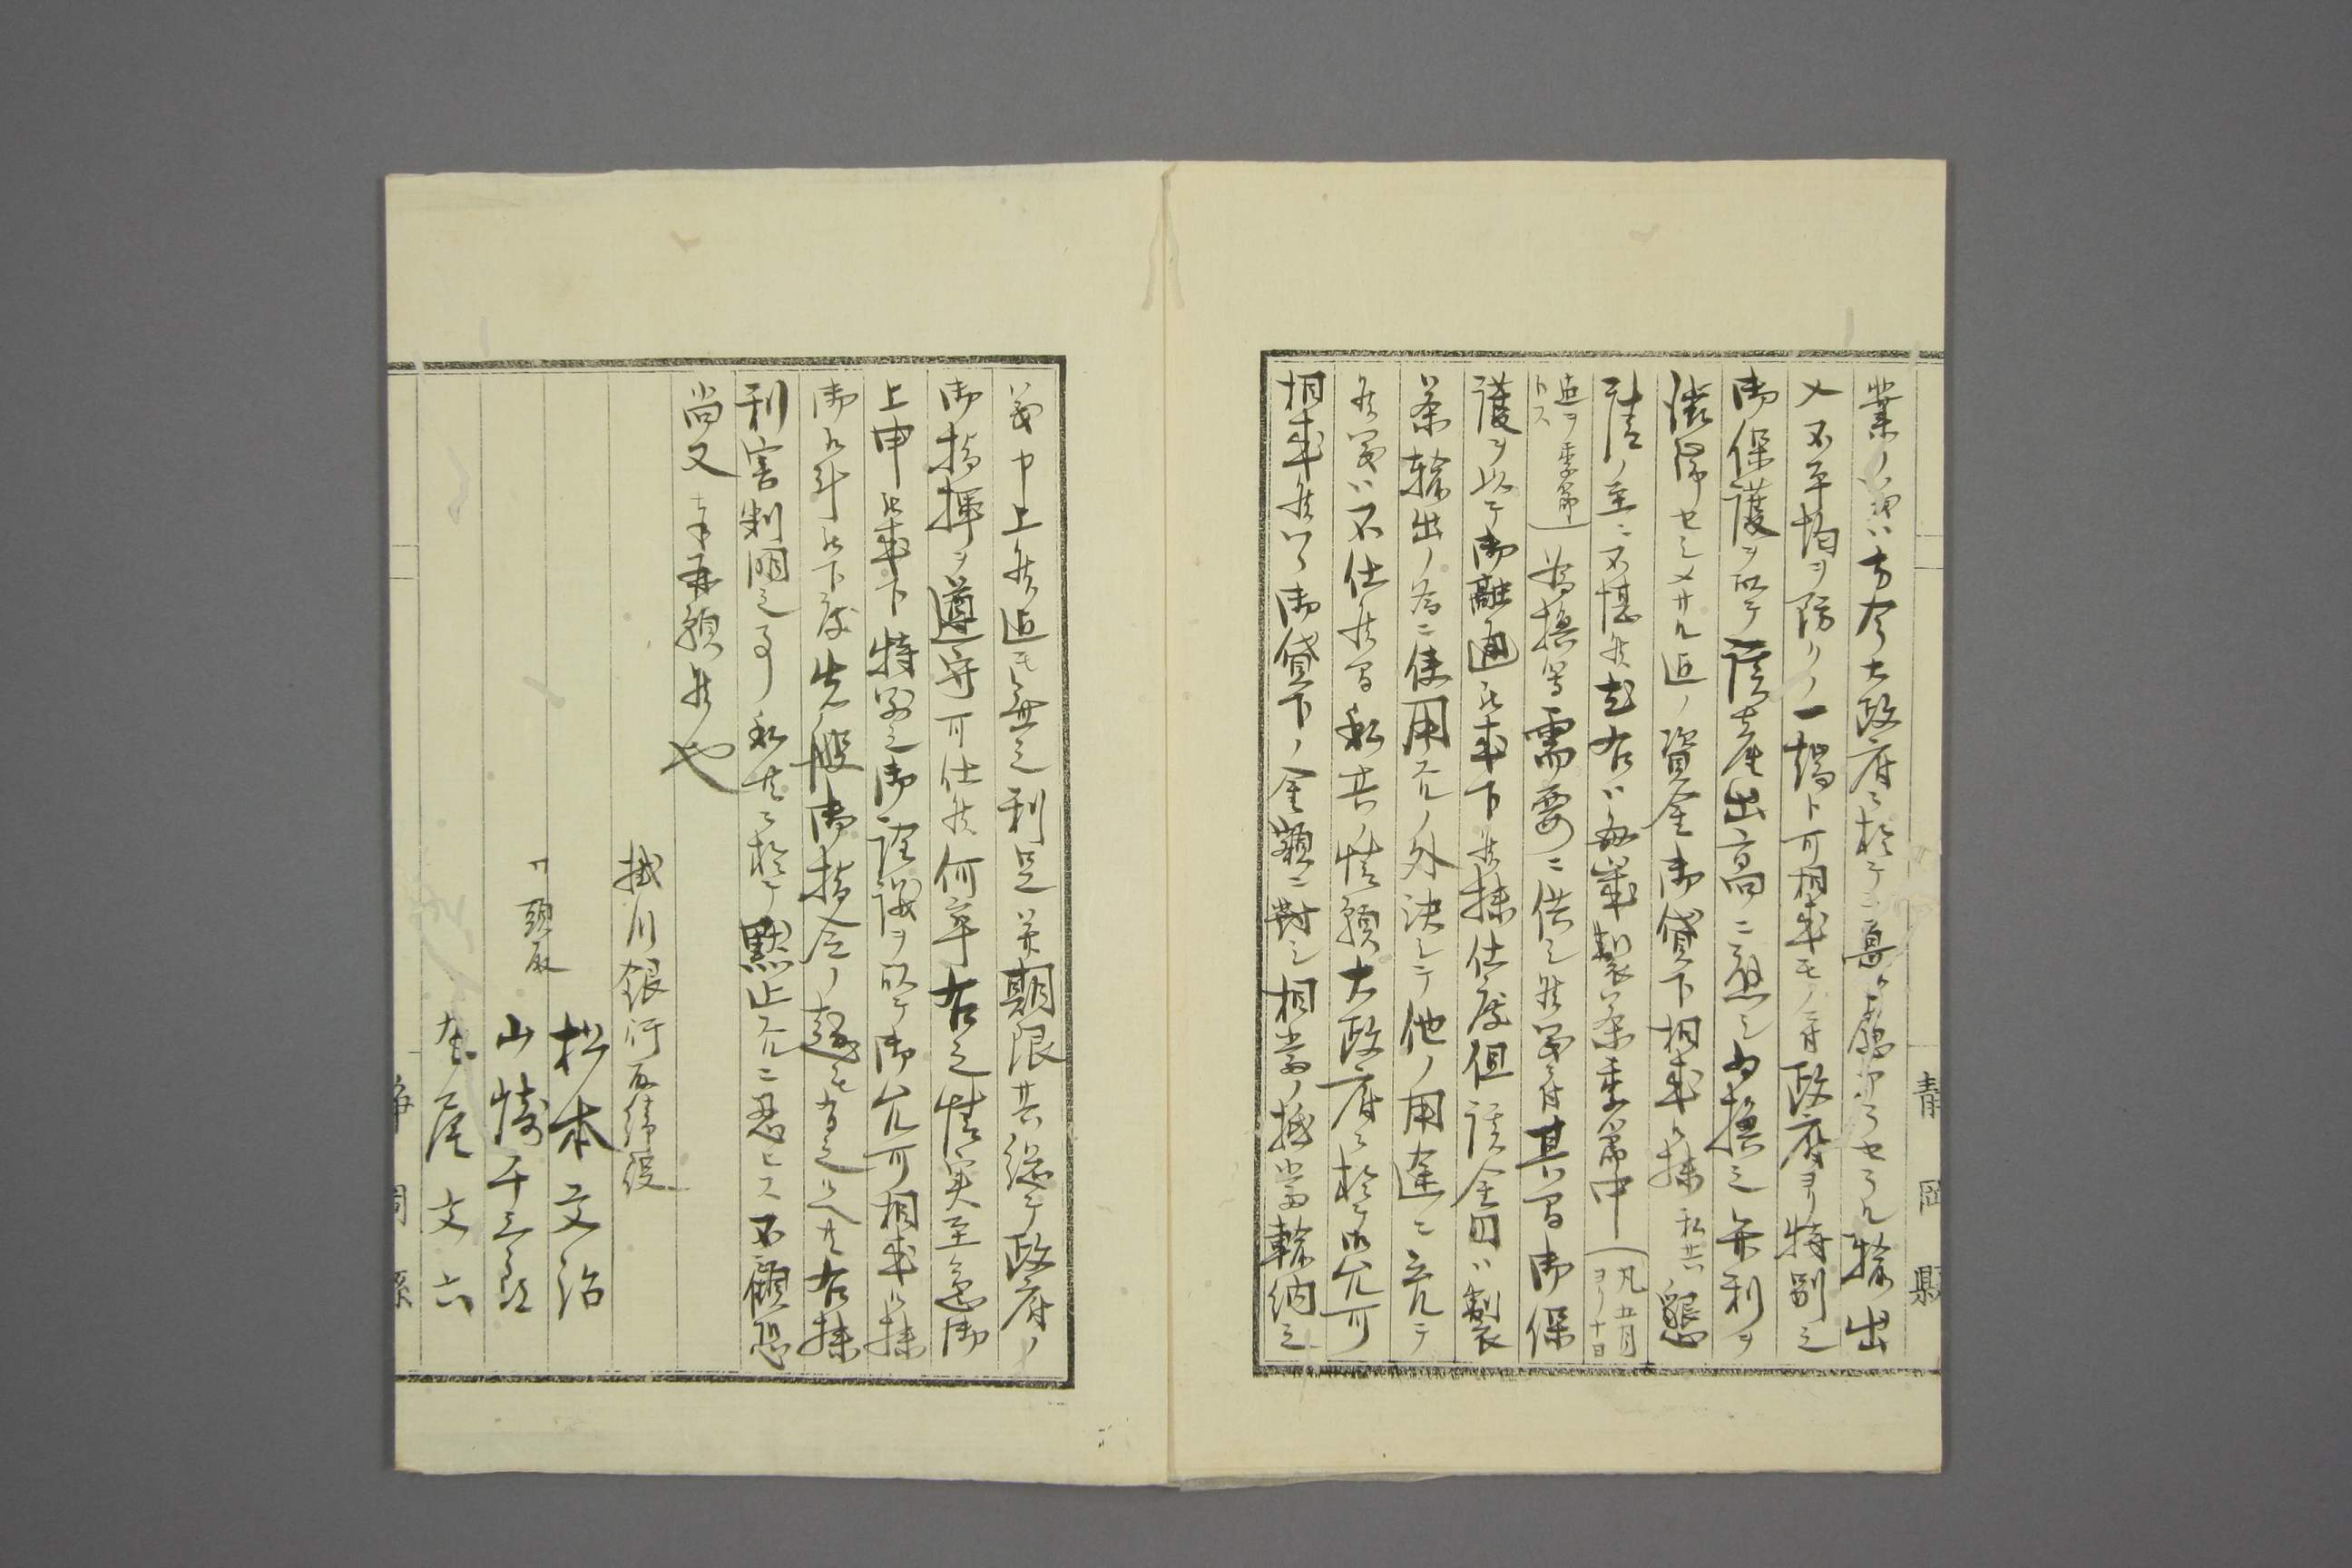 業ノ儀ハ方今大政府ニ於テモ
又不平均ヲ防クノ一端ト可相成モノニ付政府ヨリ特別之
御保護ヲ以テ該産出高ニ應シ為換之弁利ヲ
セシメサル迄ノ資金御貸下相成候様私共懇
請ノ至ニ不堪候尤右ハ毎歳製茶季節中（凡五月ヨリ十月
迄ヲ季節トス）為換等需要ニ供シ候義ニ付其節御保
護ヲ以テ御融通被成下候様仕度但該金円ハ製
茶輸出ノ為ニ使用スルノ外決シテ他ノ用途ニ充ルテ
候義ハ不仕候間私共ノ情願大政府ニ於テ御允可
相成候ハヽ御貸下ノ金額ニ對シ相當ノ抵當輸納之
義申上候迄モ無之利足并期限共総テ政府ノ
御指揮ヲ遵守可仕候何卒右之情実至急御
上申被成下特別之御詮議ヲ以テ御允可相成候様
御取計被下度先般御指令ノ趣モ有之候共右様
利害判明之事私共ニ於テ黙止スルニ忍ヒス不顧恐
尚又奉再願候也
掛川銀行取締役
松本文治
〃頭取
山崎千三郎
丸尾文六
静岡縣